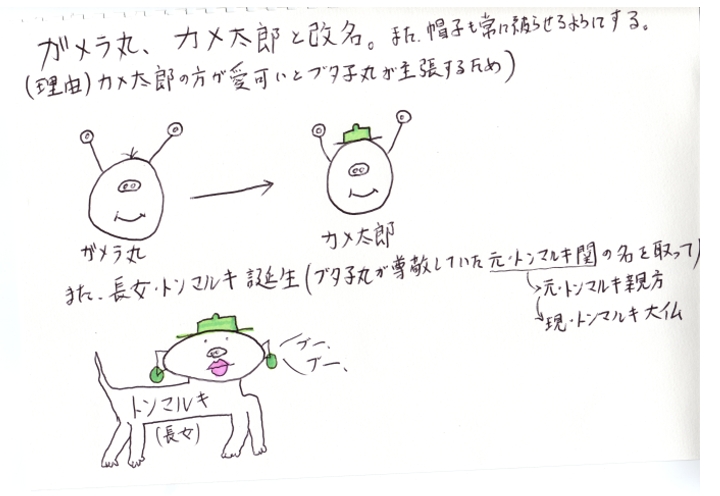 ガメラ丸、カメ太郎と改名。また、帽子も常に被らせるようにする。
(理由)カメ太郎の方が愛可いとブタ子丸が主張するため)
ガメラ丸
カメ太郎
また、長女・トンマルキ誕生(ブタ子丸が尊敬していた元・トンマルキ関の名を取って)
↳元・トンマルキ親方
↳現・トンマルキ大仏
ブー、
ブー、
トンマルキ
(長女)